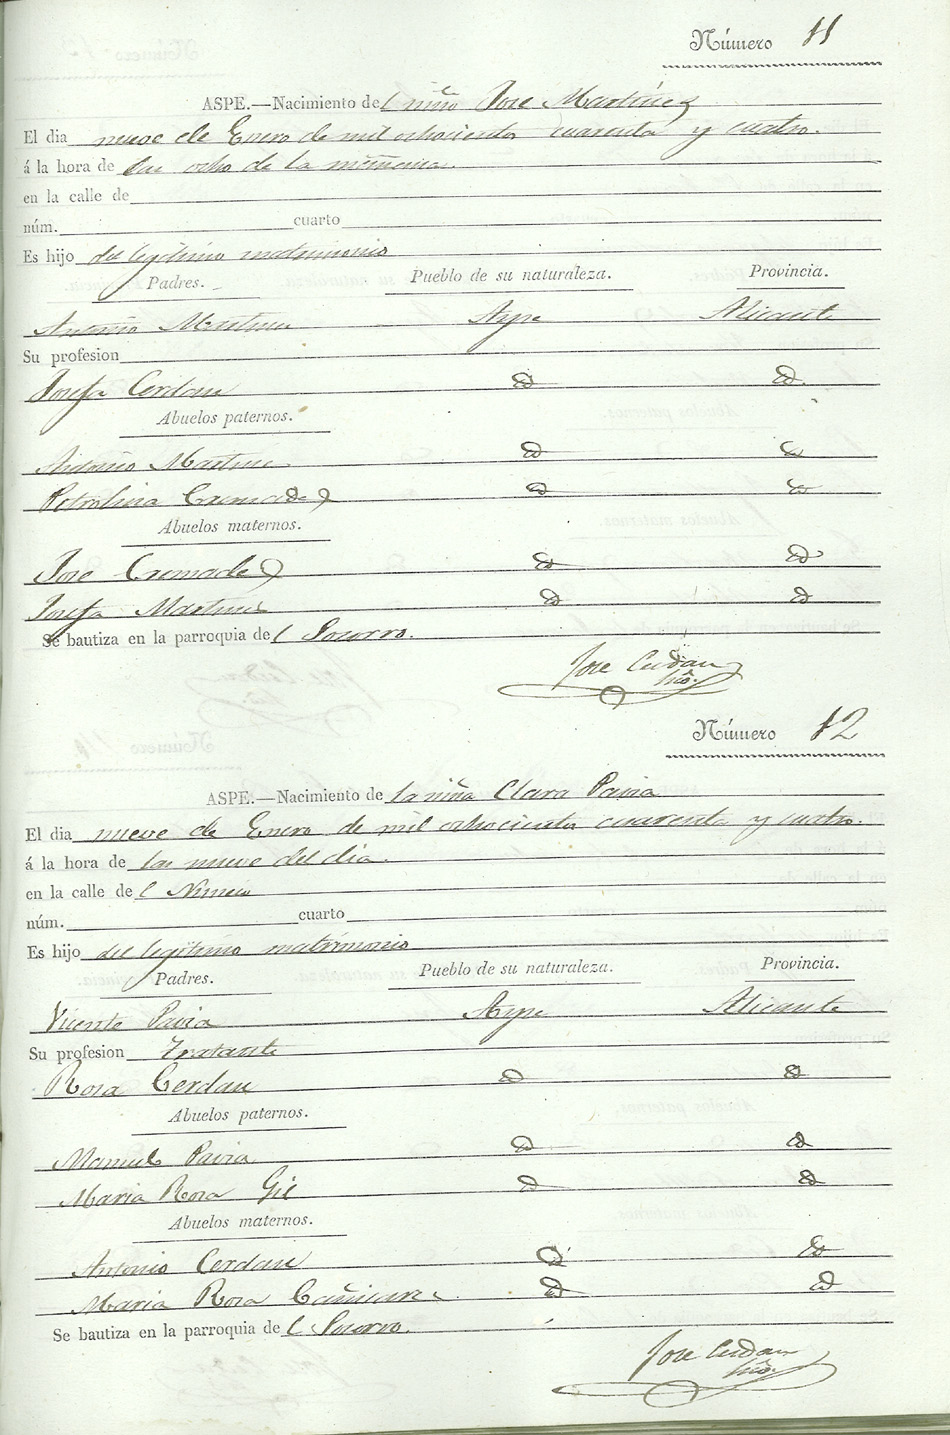 Número 11
ASPE.—Nacimiento del niño Jose Martinez
El dia nueve de Enero de mil ochocientos cuarenta y cuatro.
á la hora de las ocho de la mañana.
en la calle de
núm. cuarto
Es hijo del legitimo matrimonio
Padres. Pueblo de su naturaleza. Provincia.
Antonio Martinez Aspe Alicante
Su profesion
Josefa Cerdan id id
Abuelos paternos.
Antonio Martinez id id
Petrolina Cremades id id
Abuelos maternos.
Jose Cremades id id
Josefa Martinez id id
Se bautiza en la parroquia del Socorro.
Jose Cerdan
Número 12
ASPE.—Nacimiento de la niña Clara Pavia
El dia nueve de Enero de mil ochocientos cuarenta y cuatro.
á la hora de las nueve del dia.
en la calle del
núm. cuarto
Es hijo del legitimo matrimonio
Padres. Pueblo de su naturaleza. Provincia.
Vicente Pavia Aspe Alicante
Su profesion Tratante
Rosa Cerdan id id
Abuelos paternos.
Manuel Pavia id id
Maria Rosa Gil id id
Abuelos maternos.
Antonio Cerdan id id
Maria Rosa Cañizares id id
Se bautiza en la parroquia del Socorro.
Jose Cerdan